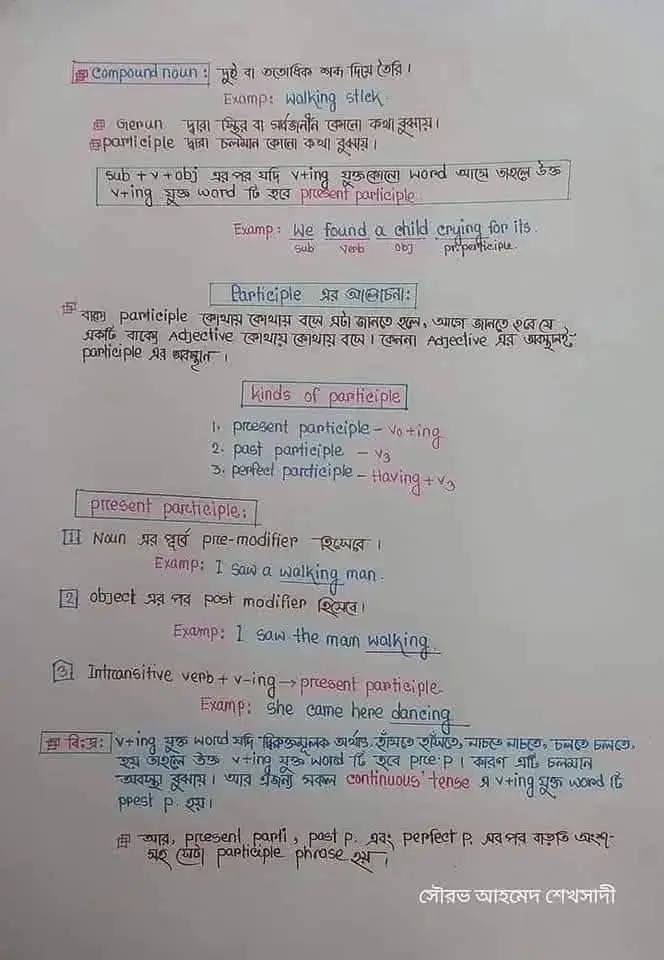 Compound noun: দুই বা ততোধিক শব্দ দিয়ে তৈরি।
Examp: walking stick.
Gerun দ্বারা স্থির বা সার্বজনীন কোনো কথা বুঝায়।
participle দ্বারা চলমান কোনো কথা বুঝায়।
sub + v + obj এর পর যদি v+ing যুক্ত কোনো word আসে তাহলে উক্ত
v+ing যুক্ত word টি হবে present participle.
Examp: We found a child crying for its.
sub verb obj pre participle.
Participle এর আলোচনা:
বাক্যে participle কোথায় কোথায় বসে এটা জানতে হলে, আগে জানতে হবে যে
একটি বাক্যে Adjective কোথায় কোথায় বসে। কেননা Adjective এর অবস্থানই
participle এর অবস্থান।
kinds of participle
1. present participle - v₀+ing
2. past participle - v₃
3. perfect participle - Having + v₃
present participle:
1 Noun এর পূর্বে pre-modifier হিসেবে।
Examp: I saw a walking man.
2 object এর পর post modifier হিসেবে।
Examp: I saw the man walking.
3 Intransitive verb + v-ing → present participle.
Examp: she came here dancing
বি:দ্র: v+ing যুক্ত word যদি দ্বিরুক্তমূলক অর্থাৎ হাঁসতে হাঁসতে, নাচতে নাচতে, চলতে চলতে,
হয় তাহলে উক্ত v+ing যুক্ত word টি হবে pre.p। কারণ এটি চলমান
অবস্থা বুঝায়। আর এজন্য সকল continuous tense এ v+ing যুক্ত word টি
prest p. হয়।
আর, present parti, past p. এবং perfect p. এর পর বাড়তি অংশ-
সহ গোটা participle phrase হয়।
সৌরভ আহমেদ শেখসাদী